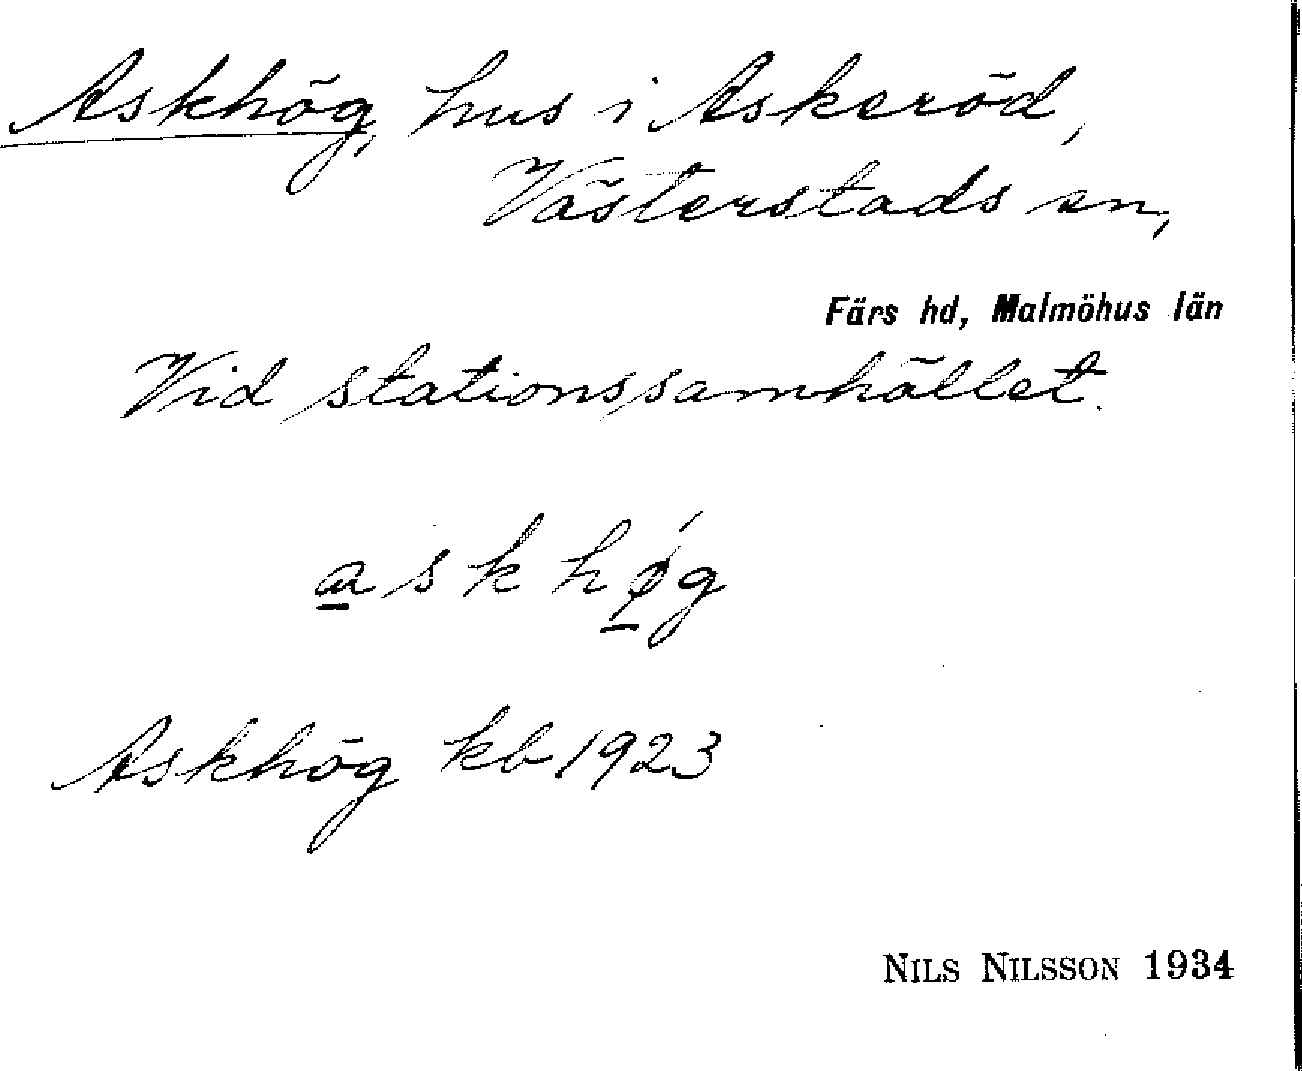 Askhög, hus i Askeröd,
Västerstads sn,
Färs hd, Malmöhus län
Vid stationssamhället.
a s k h ǿ g
Askhög kb 1923
NILS NILSSON 1934